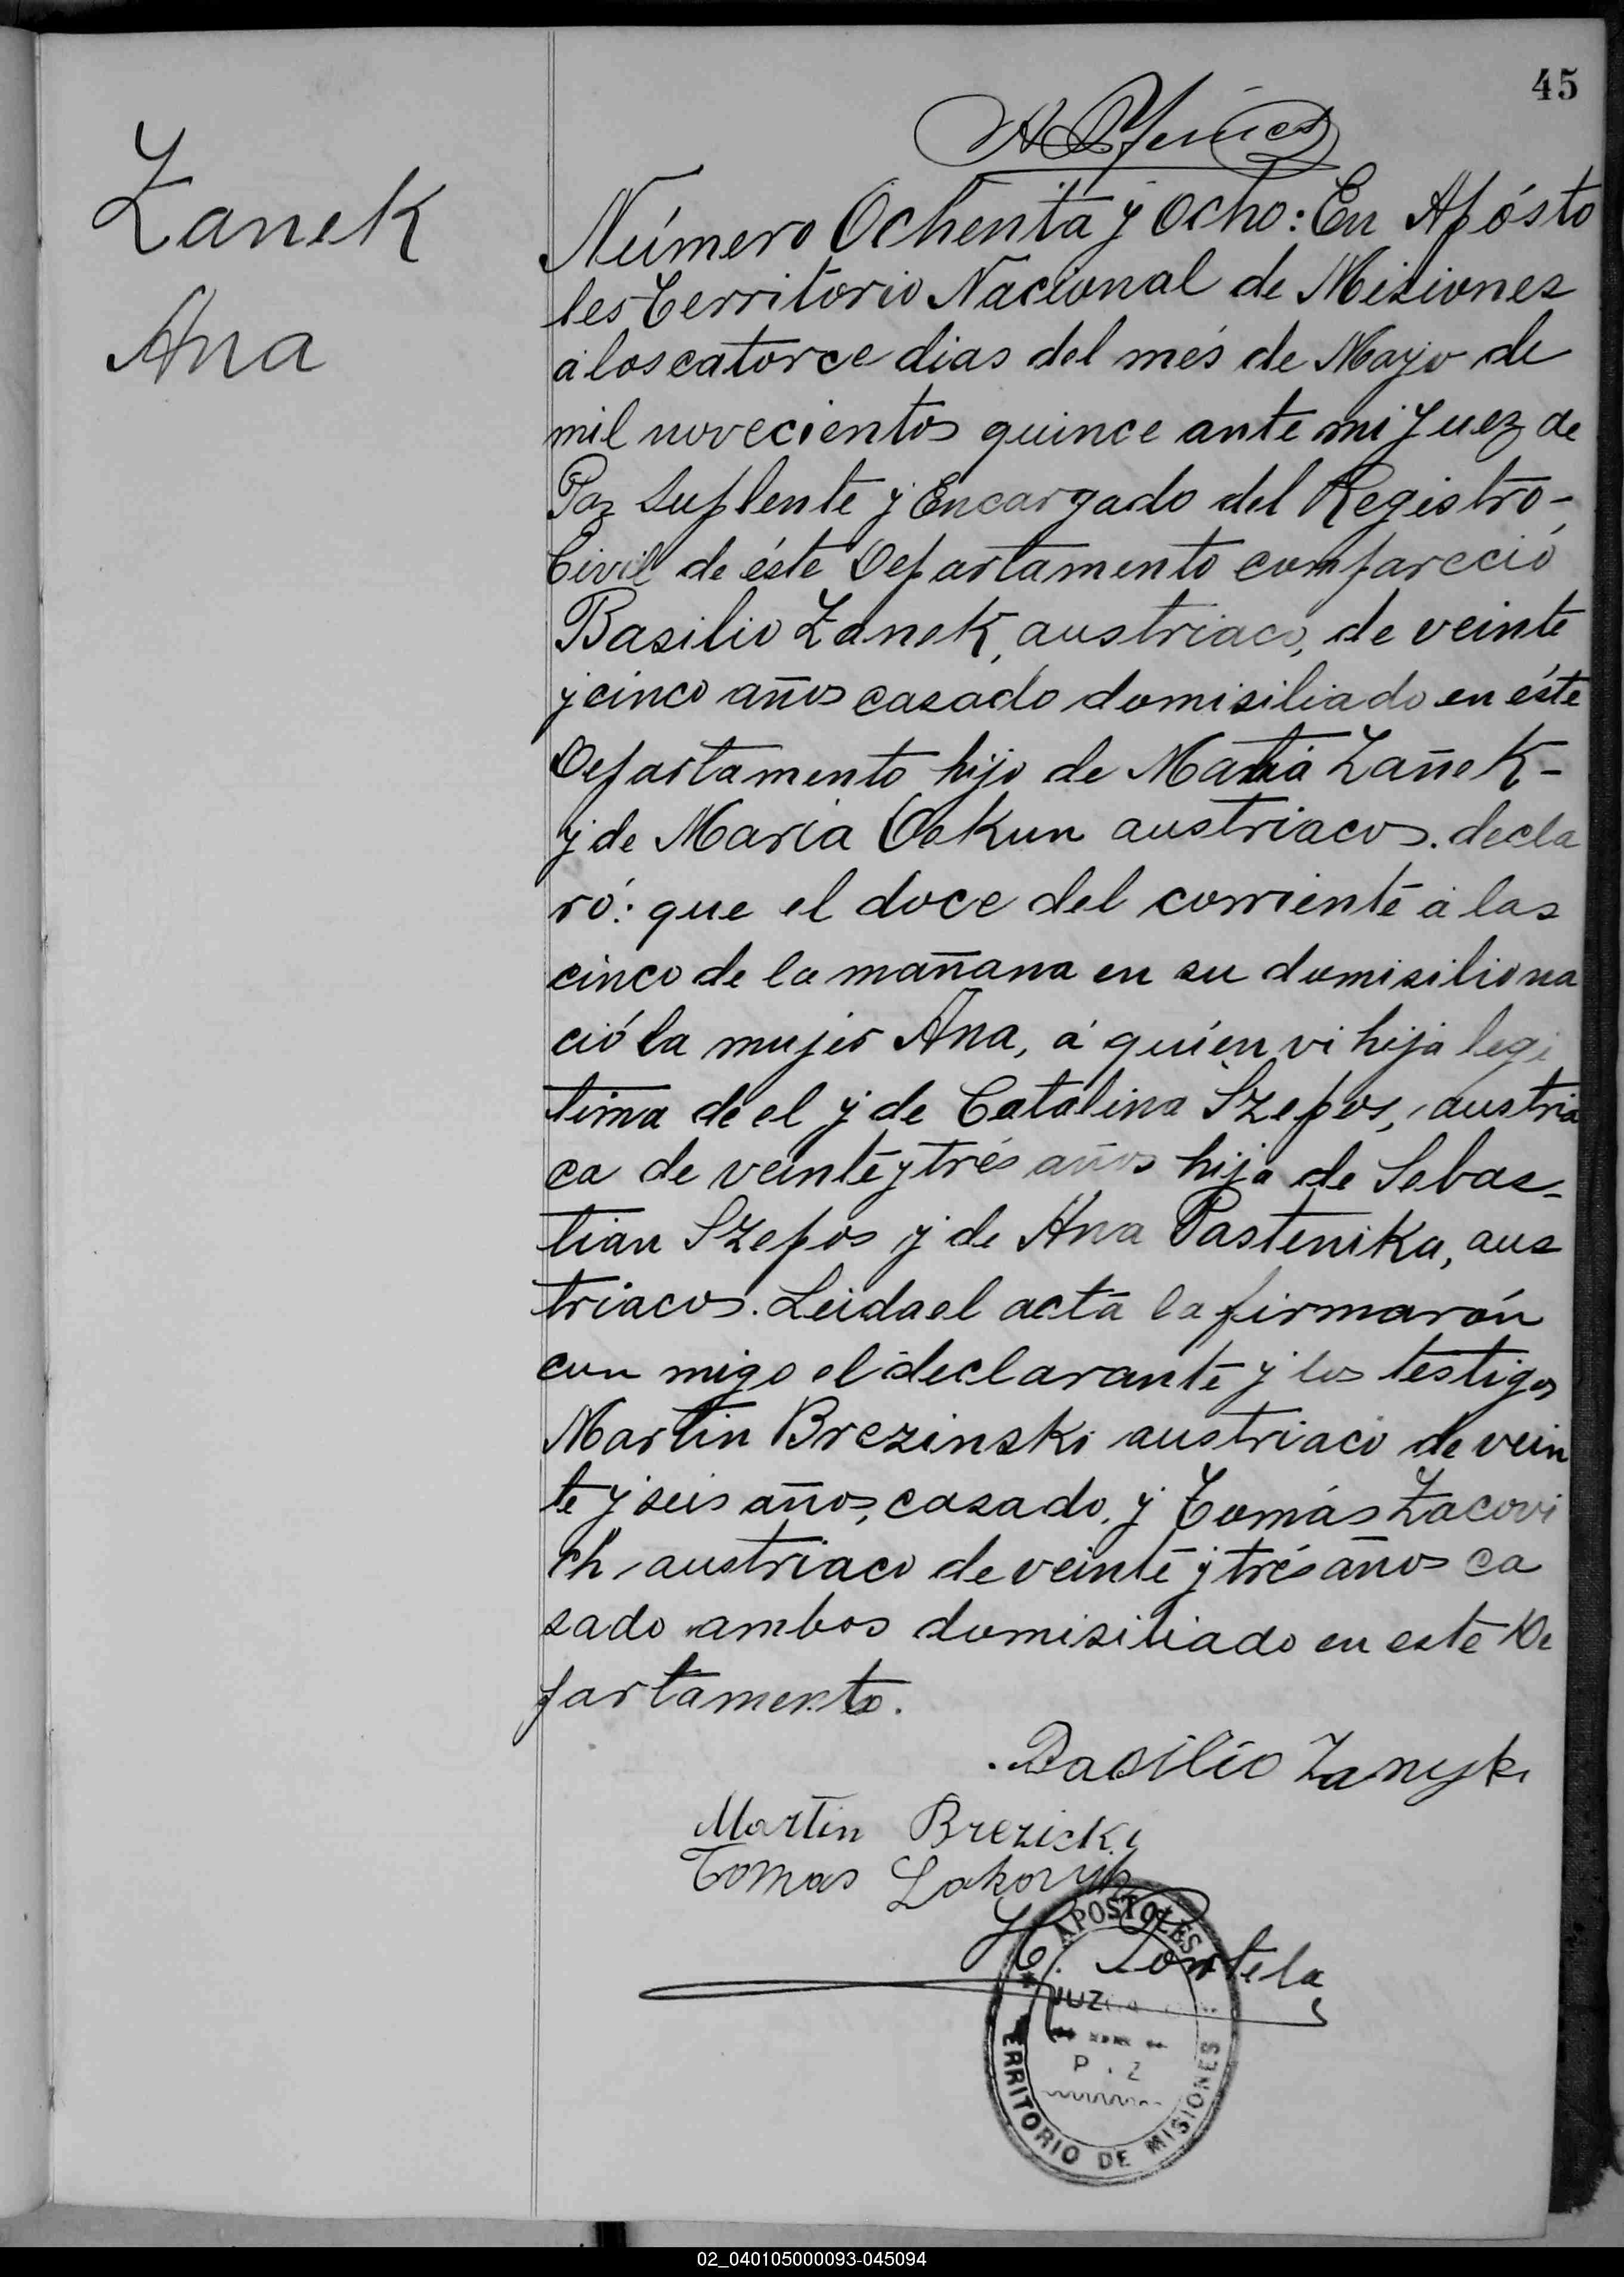 45
Zanek
Ana
Número Ochenta y Ocho: En Apósto
les Territorio Nacional de Misiones
á los catorce dias del més de Mayo de
mil novecientos quince ante mi Juez de
Paz Suplente y Encargado del Registro-
Civil de éste Departamento compareció
Basilio Zanek, austriaco, de veinte
y cinco años casado domisiliado en éste
Departamento hijo de Zañek-
y de Maria austriacos. decla
ró: que el doce del corriente á las
cinco de la mañana en su domisilio na
ció la mujer Ana, á quien vi hija legi
tima de el y de Catalina Szepos, austria
ca de veinte y trés años hija de Sebas-
tian Szepos y de Ana Pastenika, aus
triacos. Leida el acta la firmarón
con migo el declarante y los testigos
Martin Brezinski austriaco de vein
te y seis años, casado, y Tomás Zacovi
ch austriaco de veinte y trés años ca
sado ambos domisiliado en este De
partamento.
Basilio Zanyk
Martin Brezicki
Tomas
H. Portela
APOSTOLES
JUZ
TERRITORIO DE MISIONES
02_040105000093-045094